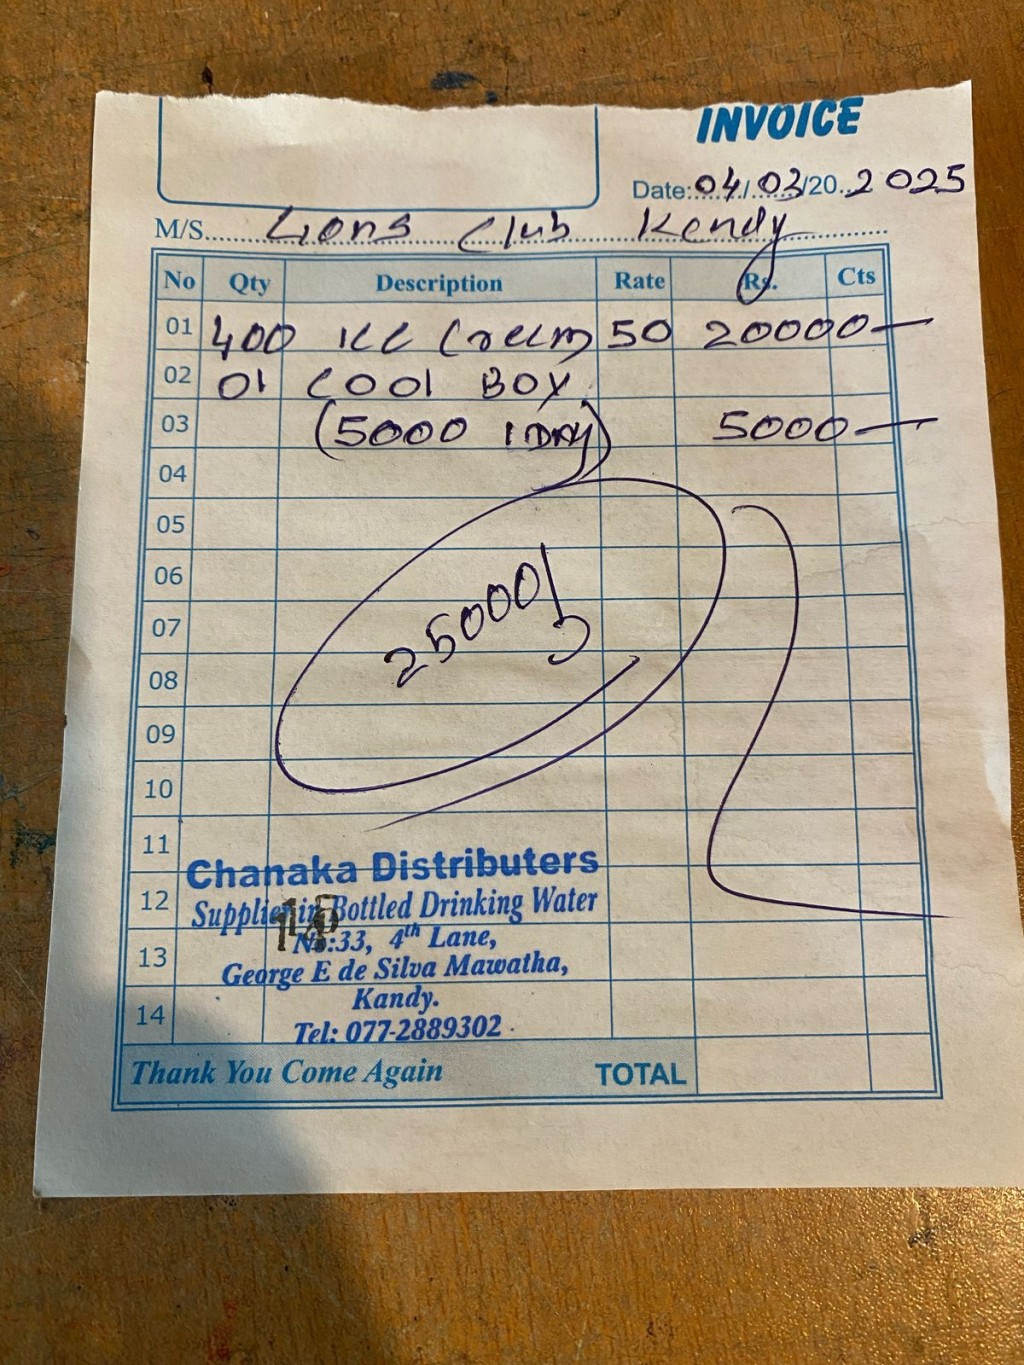 INVOICE
Date:04/03/20..2025
M/S. Lions Club Kandy
No Qty Description Rate Rs. Cts
01 400 ICE Cream 50 20000 —
02 01 COOl BOX
03 (5000 1 DAY) 5000 —
04
05
06
07
25000/
08
09
10
11
Chanaka Distributers
12 Supplier in Bottled Drinking Water
No:33, 4th Lane,
13 George E de Silva Mawatha,
Kandy.
14 Tel: 077-2889302
Thank You Come Again TOTAL